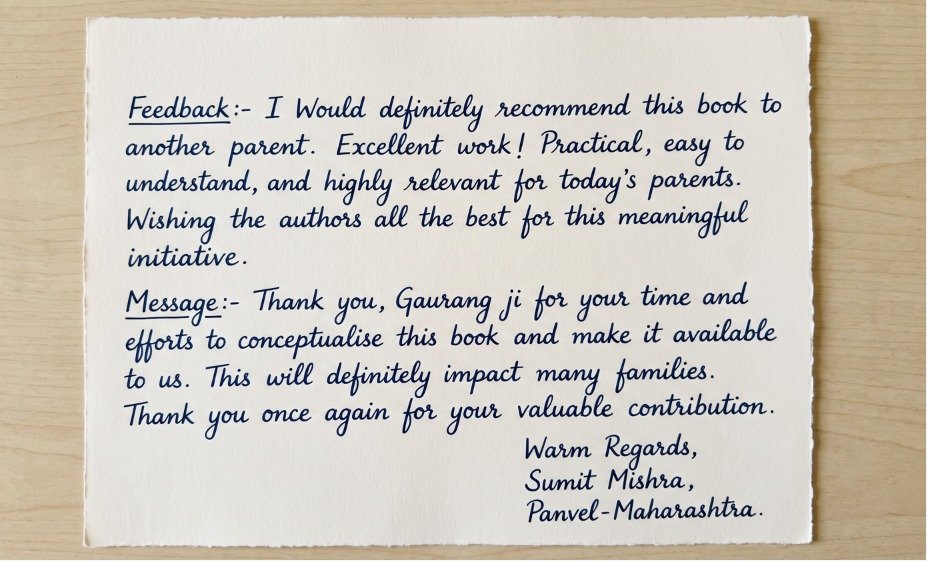 Feedback:- I Would definitely recommend this book to
another parent. Excellent work! Practical, easy to
understand, and highly relevant for today's parents.
Wishing the authors all the best for this meaningful
initiative.
Message:- Thank you, Gaurang ji for your time and
efforts to conceptualise this book and make it available
to us. This will definitely impact many families.
Thank you once again for your valuable contribution.
Warm Regards,
Sumit Mishra,
Panvel-Maharashtra.